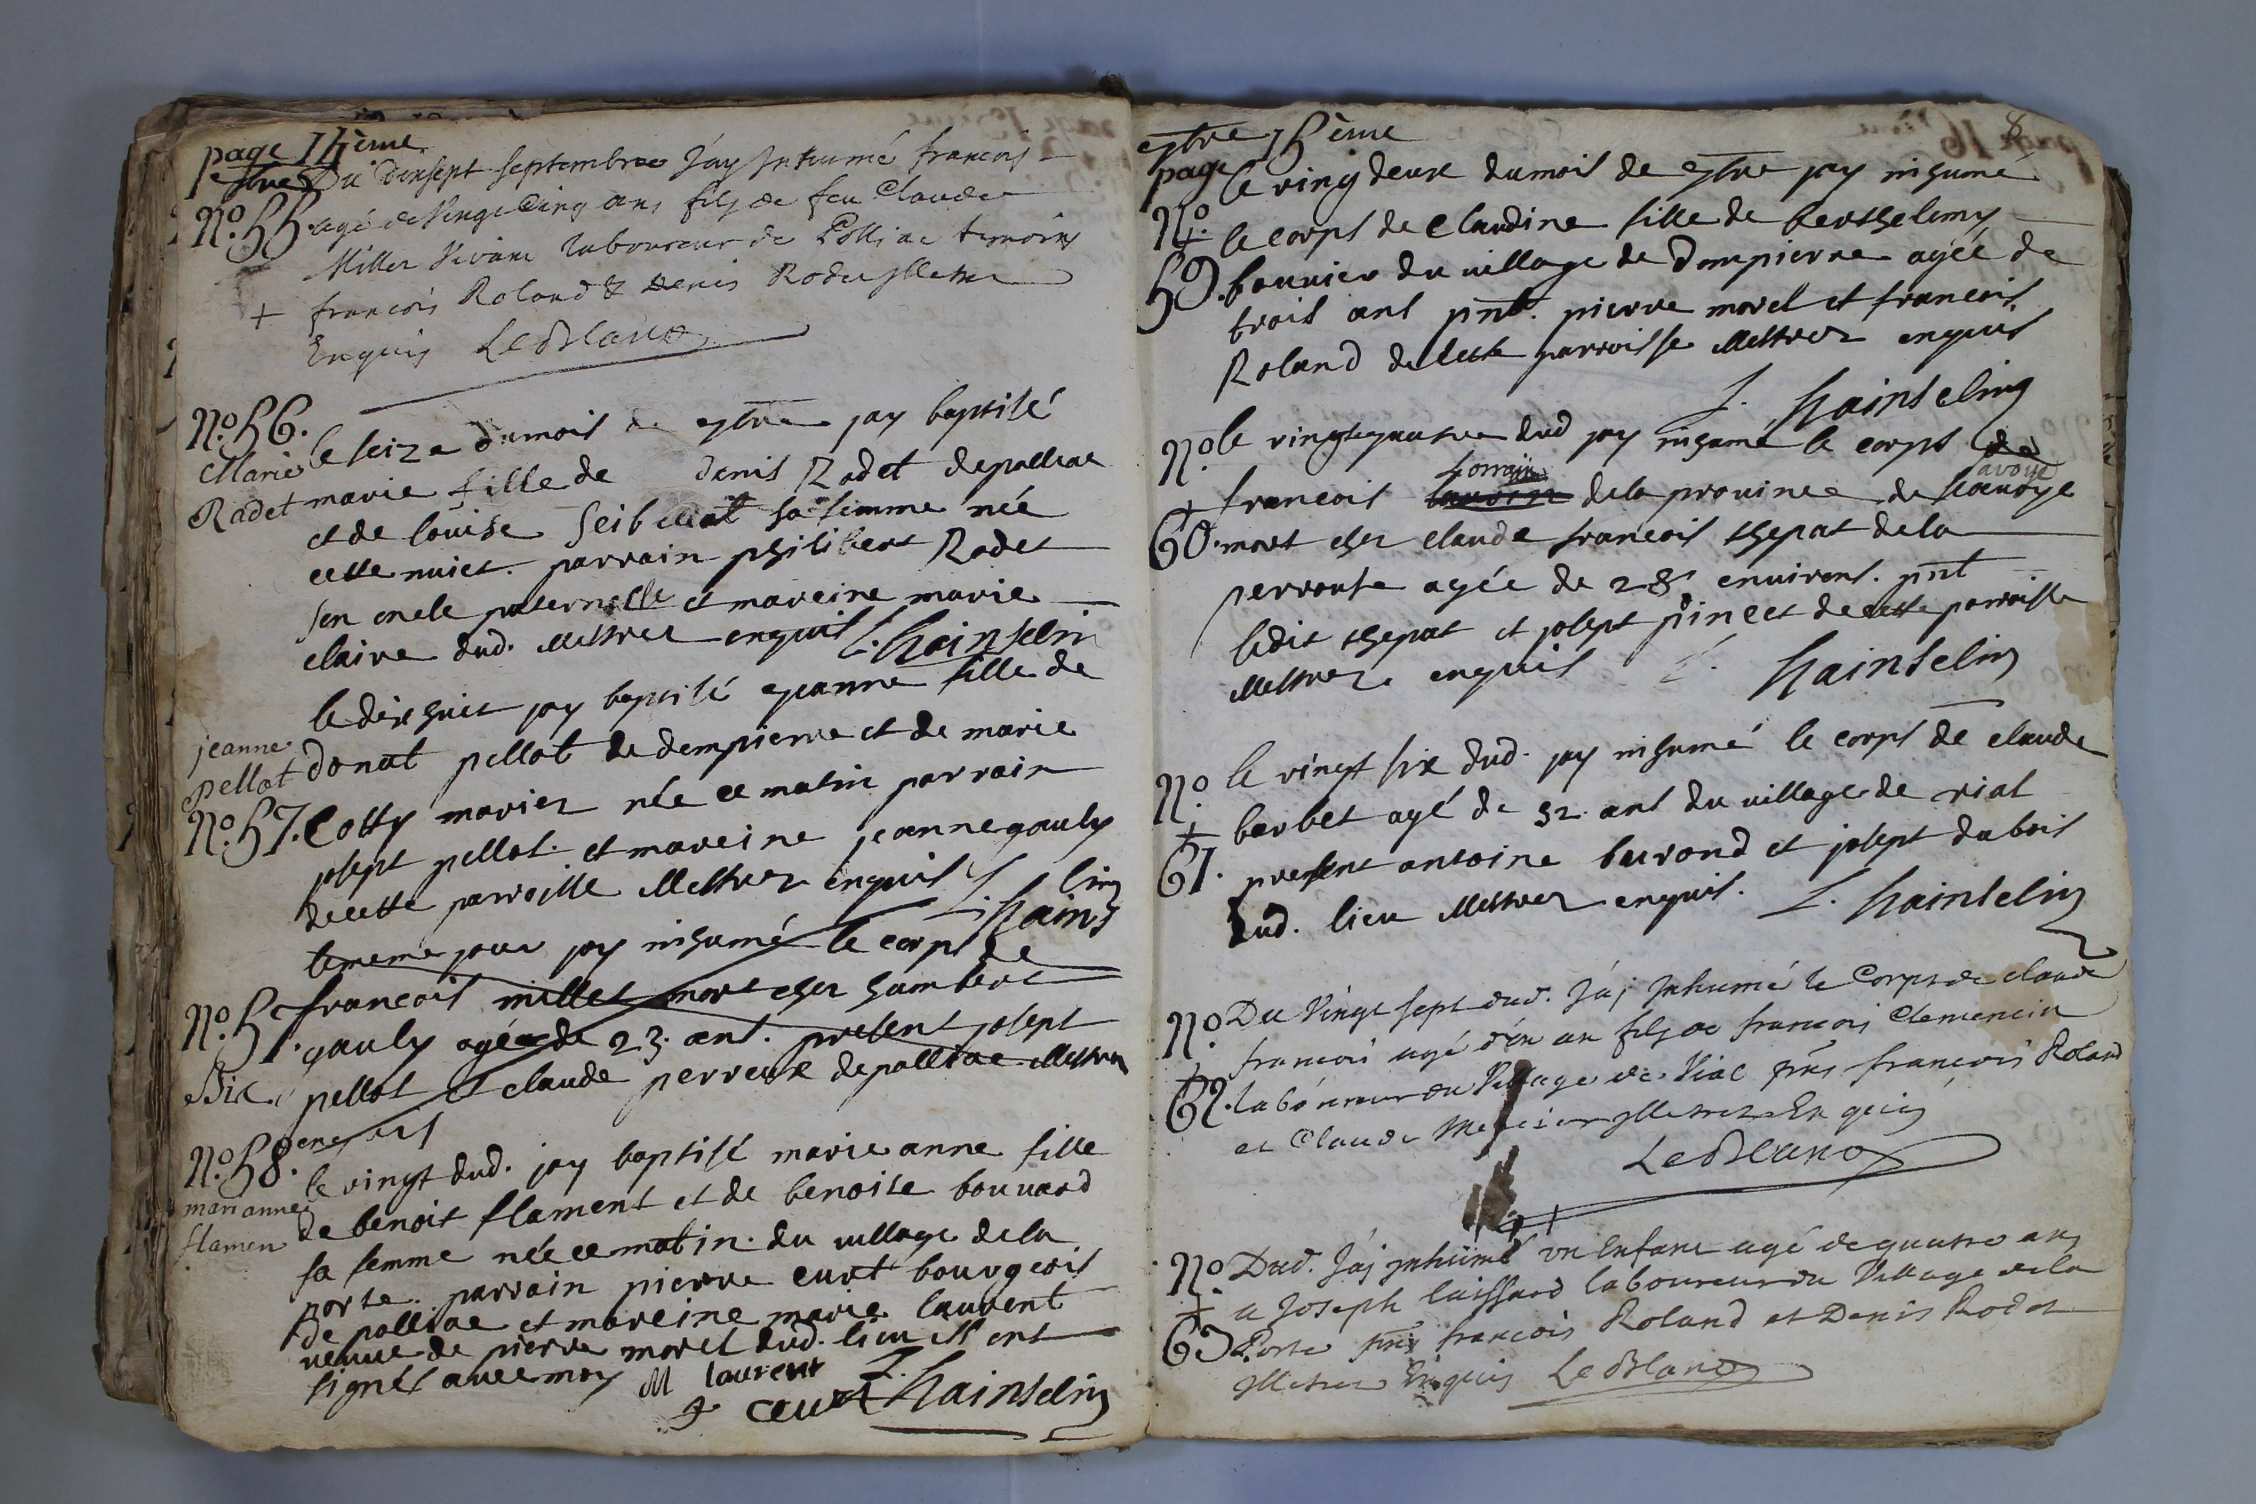 page 14ème
7bre Du dixsept septembre J'ay Inhumé francois
N.o 55. agé de Vingt Cinq ans fils de feu Claude
Millet Vivant laboureur de Polliac temoins
+ francois Roland & Denis Rodet Illettrez
Enquis LeBlanc
N.o 56. le seize du mois de 7bre jay baptisé
Marie
Radet marie fille de denis Radet de polliac
et de louise Seib sa femme née
cette nuict. parrain philibert Radet
son oncle paternelle et mareine marie
claire dud. illettrez enquis L. hainselin
le dix huit jay baptisé jeanne fille de
jeanne
pellot donat pellot de dompierre et de marie
N.o 57. Cotty mariez née ce matin parrain
josept pellot. et mareine jeanne gauly
de cette parroisse illettrez enquis L. hainselin
le meme jour jay inhumé le corps de
N.o 5 francois millet mort chez humbert
gauly agée de 23. ans. present josept
Bix pellot et claude perreux de polliac illettrez
enquis
N.o 58. le vingt dud. jay baptisé marie anne fille
mari anne
flamen de benoit flament et de benoite bouvard
sa femme née ce matin. du village de la
porte. parrain pierre curt bourgeois
de polliac et mareine marie laurent
veuve de pierre morel dud. lieu ils ont
signés avec moy M laurent
+ ceurt L. hainselin
7bre 15ème
page le ving deux du mois de 7bre jay inhumé
N.o le corps de Claudine fille de berthelemy
+
59. bouvier du village de dompierre agée de
trois ans pnt. pierre morel et francois
Roland de cette parroisse illettrez enquis
L. hainselin
N.o le vingtequatre dud jay inhumé le corps de
+ francois lorrain de la province de savoye
60. mort chez claude francois thepat de la
perrouse agée de 28 environs. pnt
ledit thepat et josept pinet de cette parroisse
illettrez. enquis L. hainselin
N.o le vingt six dud. jay inhumé le corps de claude
+ berbet agé de 52 ans du village de riat
61. present antoine burond et josept dubois
dud. lieu illettrez enquis. L. hainselin
N.o Du Vingt sept dud. J'aj Inhumé le Corps de claude
+ francois agé d'un an fils de francois Clemencin
62. laboureur du Village de Viac pnts francois Roland
et Claude Mercier Illettrez Enquis
LeBlanc
N.o Dud. J'aj inhumé un Enfant agé de quatre ans
+ a Joseph laissard laboureur du Village de la
63. Porte pnts francois Roland et Denis Rodet
Illettrez Enquis LeBlanc